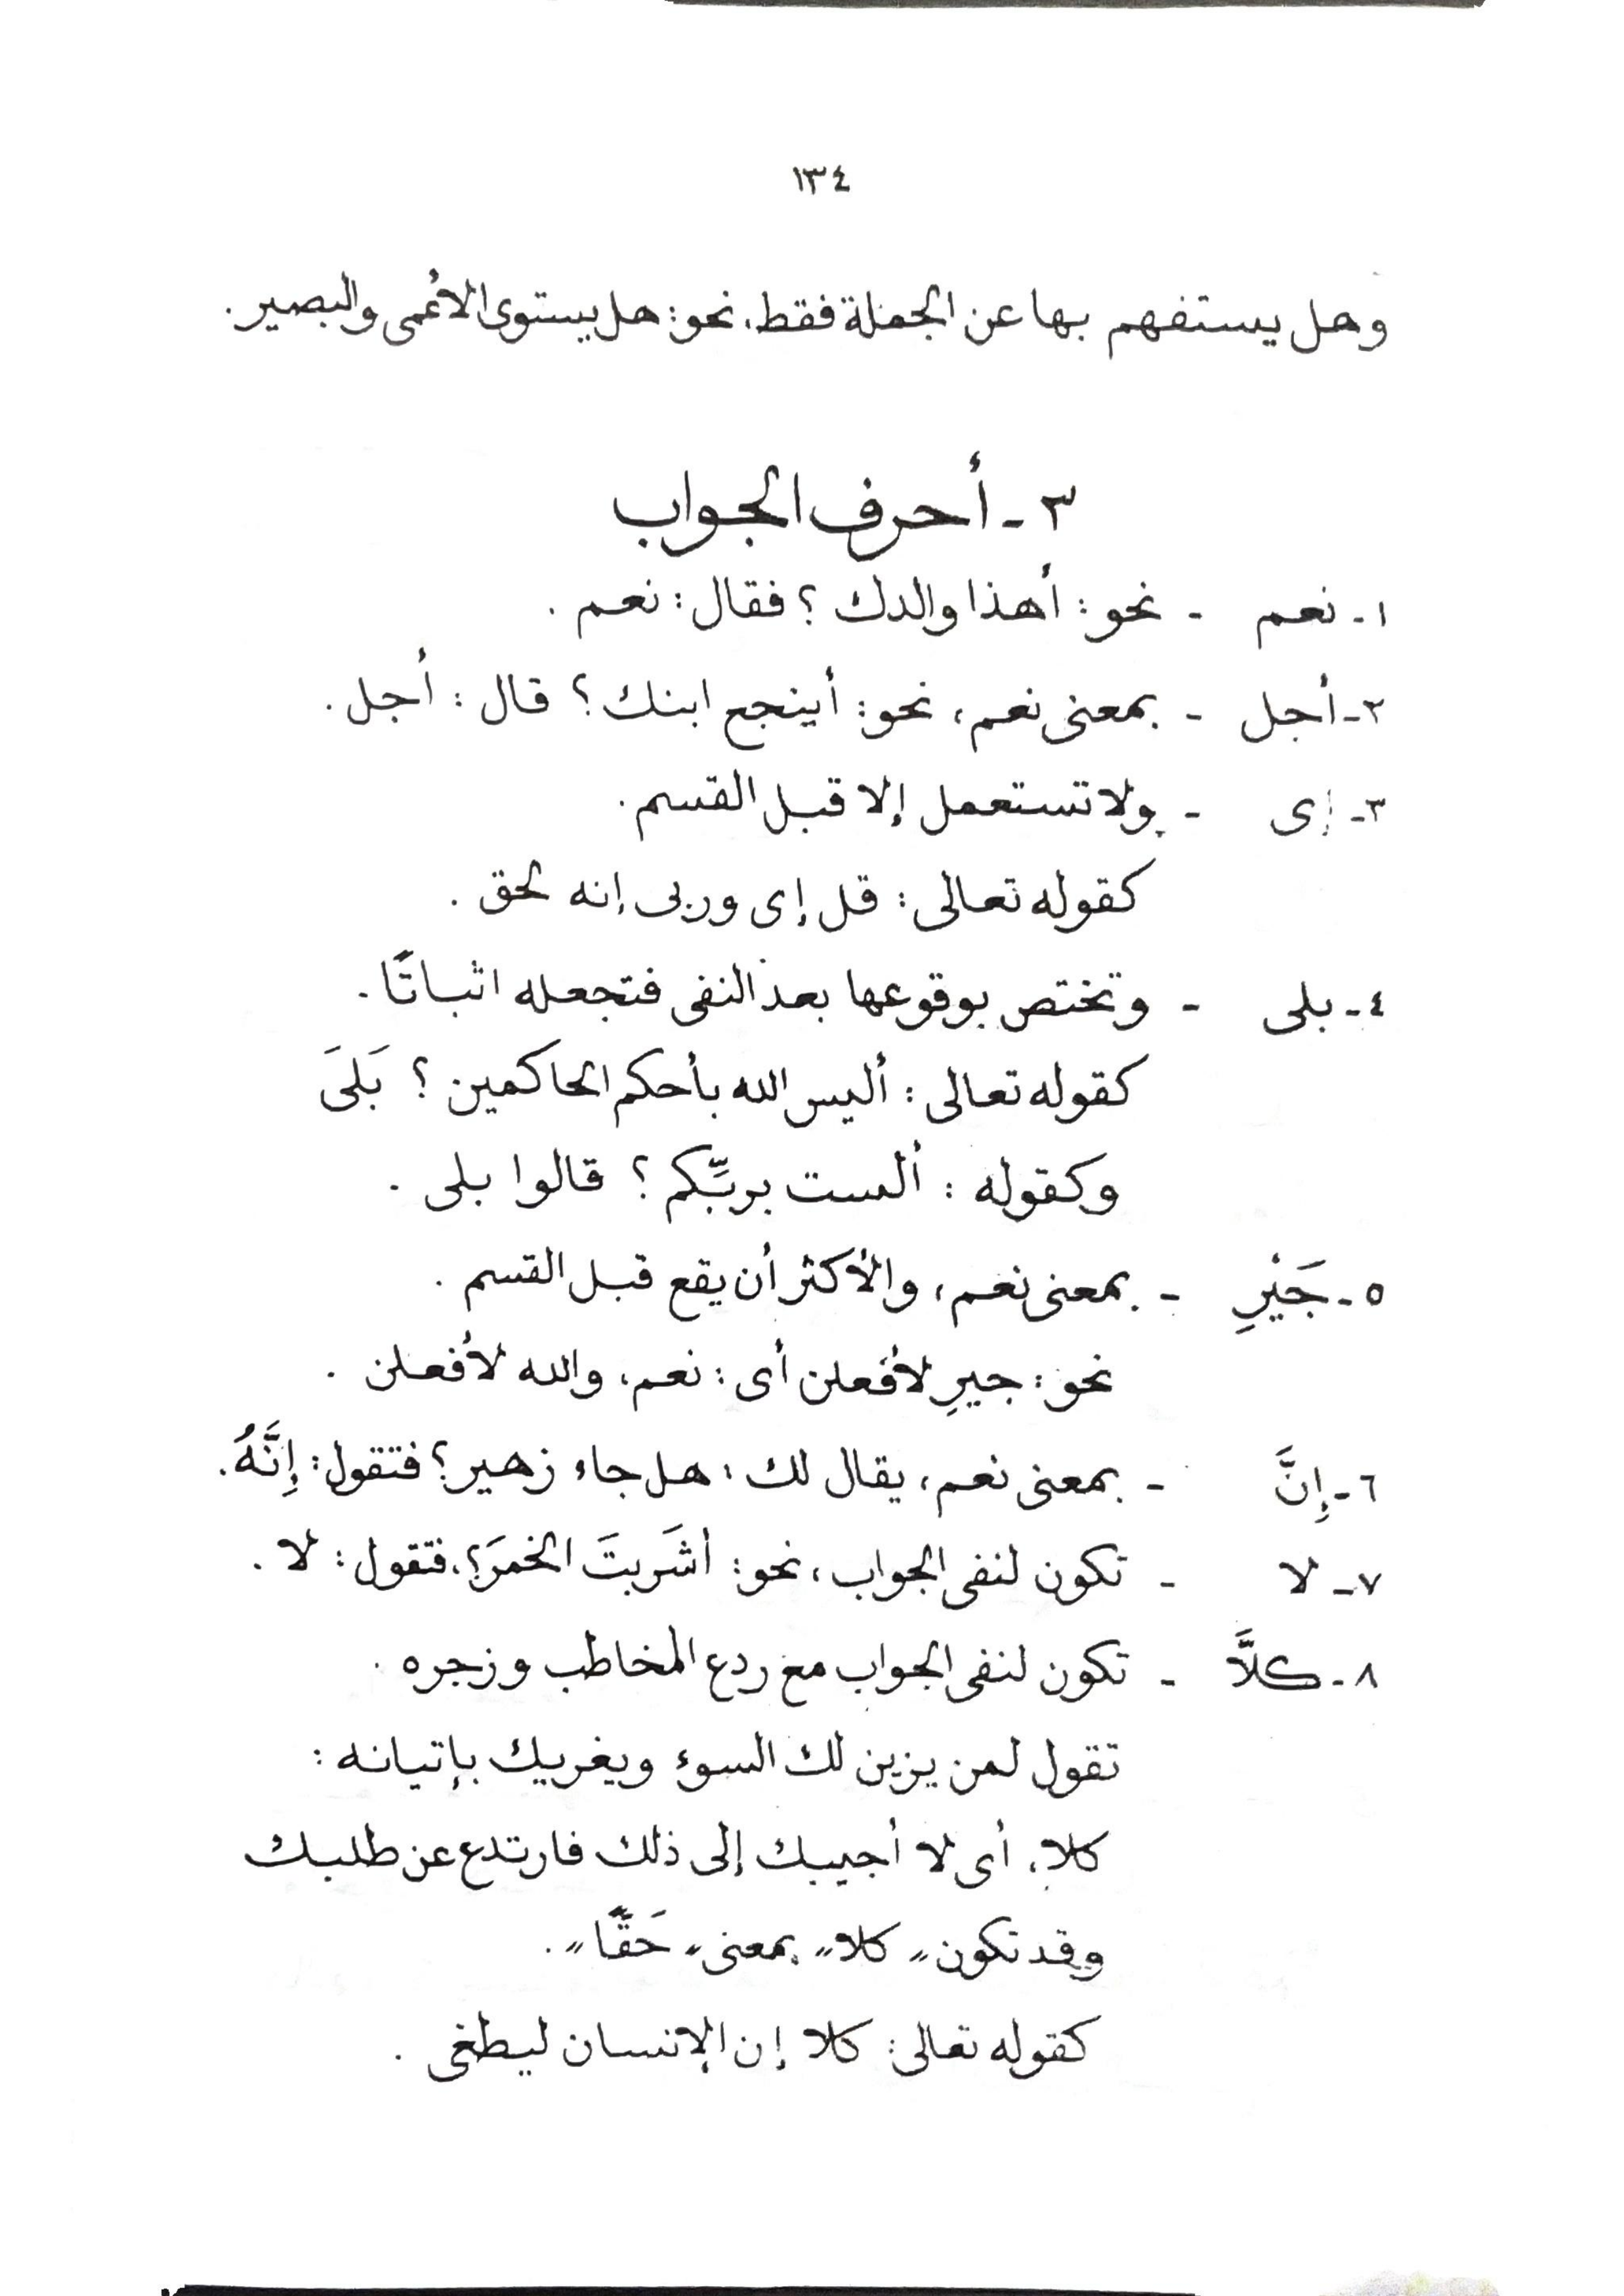 ١٣٤
وهل يستفهم بها عن الجملة فقط، نحو: هل يستوى الأعمى والبصير.
٣ - أحرف الجواب
١- نعم - نحو: أهذا والدك ؟ فقال: نعم .
٢- أجل - بمعنى نعم، نحو: أينجع ابنك ؟ قال : أجل .
٣- إى - ولا تستعمل إلا قبل القسم .
كقوله تعالى : قل إى وربى إنه لحق .
٤- بلى - وتختص بوقوعها بعد النفى فتجعله اثباتًا .
كقوله تعالى : أليس الله بأحكم الحاكمين ؟ بَلَىَ
وكقوله : ألست بربِّكم ؟ قالوا بلى .
٥- جَيْرِ - بمعنى نعم، والأكثر أن يقع قبل القسم .
نحو : جيرِ لأفعلن أى : نعم، والله لأفعلن .
٦- إِنَّ - بمعنى نعم، يقال لك : هل جاء زهير؟ فتقول: إِنَّهُ.
٧- لا - تكون لنفى الجواب، نحو: أشَربتَ الخمرَ؟، فتقول: لا .
٨- كلاَّ - تكون لنفى الجواب مع ردع المخاطب وزجره .
تقول لمن يزين لك السوء ويغريك بإتيانه :
كلا، أى لا أجيبك إلى ذلك فارتدع عن طلبك
وقد تكون " كلا " بمعنى " حَقًّا " .
كقوله تعالى : كلا إن الإنسان ليطغى .